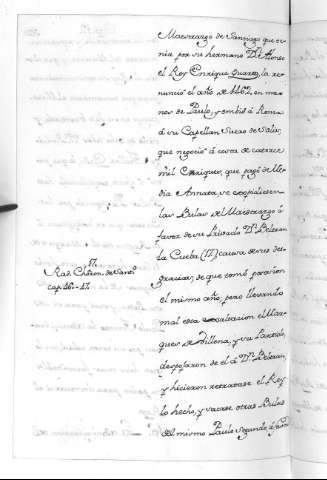 Maestrazgo de Santiago que te-
nia por su hermano D.n Alonso
el Rey Enrique Quarto, la re-
nunció el año de 1462, en ma-
nos de Paulo, y embió á Roma
á su Capellan Suero de Solis,
que negoció á costa de catorce
mil Enriques, que pagó de Me-
dia Annata, se expidiesen
las Bulas del Maestrazgo á
favor de su Privado D.n Beltran
la Cueba (17) causa de sus des-
gracias, de que tomó posesion
el mismo año, pero llevando
mal esta exaltacion el Mar-
ques de Villena, y su Partido,
despojaron de el á D.n Beltran,
y hicieron retratase el Rey
lo hecho, y sacase otras Bulas
del mismo Paulo Segundo, á favor
17.
Rad. Chron. de Sant.o
cap. 46. 47.